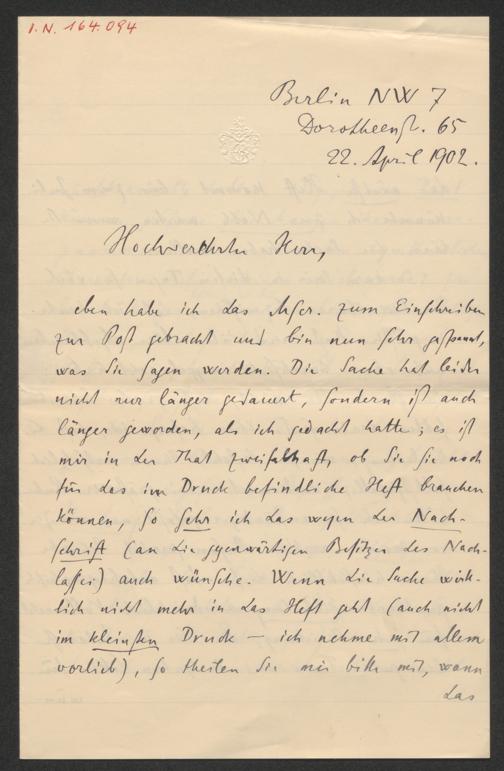 I.N. 164.094
Berlin NW 7
Dorotheenstr. 65
22. April 1902.
Hochverehrter Herr,
eben habe ich das Mscr. zum Einschreiben
zur Post gebracht und bin nun sehr gespannt,
was Sie sagen werden. Die Sache hat leider
nicht nur länger gedauert, sondern ist auch
länger geworden, als ich gedacht hatte; es ist
mir in der That zweifelhaft, ob Sie sie noch
für das im Druck befindliche Heft brauchen
können, so sehr ich das wegen der Nach-
schrift (an die gegenwärtigen Besitzer des Nach-
lasses) auch wünsche. Wenn die Sache wirk-
lich nicht mehr in das Heft geht (auch nicht
im kleinsten Druck – ich nehme mit allem
vorlieb), so theilen Sie mir bitte mit, wann
das